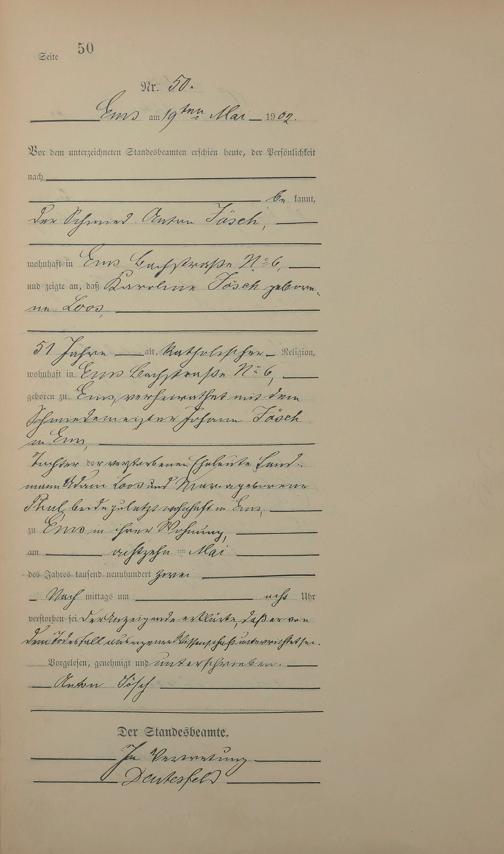 Seite 50
Nr. 50.
Ems am 19ten Mai 1902.
Vor dem unterzeichneten Standesbeamten erschien heute, der Persönlichkeit
nach
be kannt,
der Schmied Anton Jösch,
wohnhaft in Ems Bachstraße No 6,
und zeigte an, daß Karoline Jösch gebore-
ne Loos,
51 Jahre alt, Katholischer Religion,
wohnhaft in Ems Bachstraße No 6,
geboren zu Ems, verheirathet mit dem
Schmiedemeister Johann Jösch
in Ems,
Tochter der verstorbenen Eheleute Land-
mann Adam Loos und Maria geborene
beide zuletzt wohnhaft in Ems,
zu Ems in ihrer Wohnung,
am achtzehn Mai
des Jahres tausend neunhundert zwei
Nach mittags um acht Uhr
verstorben sei. Der Anzeigende erklärte, daß er von
dem Todesfall aus eigener Wissenschaft unterrichtet sei.
Vorgelesen, genehmigt und unterschrieben.
Anton Jösch
Der Standesbeamte.
In Vertretung